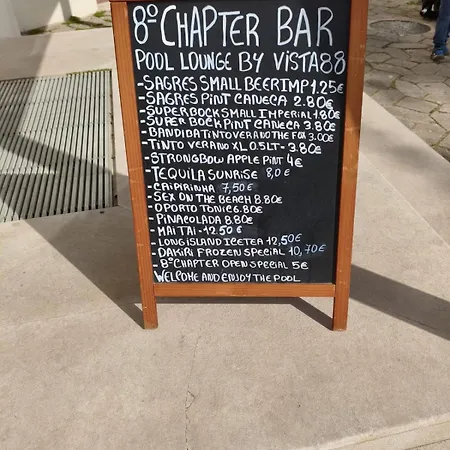 8º CHAPTER BAR
POOL LOUNGE BY VISTA88
-SAGRES SMALL BEER IMP 1.25€
-SAGRES PINT CANECA 2.80€
-SUPERBOCK SMALL IMPERIAL 1.80€
-SUPER BOCK PINT CANECA 3.80€
-BANDIDA TINTO VERANO THE FOX 3.00€
-TINTO VERANO XL 0.5LT-3.80€
-STRONGBOW APPLE PINT 4€
-TEQUILA SUNRISE 8,0€
-CAIPIRINHA 7,50€
-SEX ON THE BEACH 8.80€
-OPORTO TONIC 6.80€
-PINACOLADA 8.80€
-MAI TAI-12.50€
-LONG ISLAND ICETEA 12,50€
-DAKIRI FROZEN SPECIAL 10,70€
-8º CHAPTER OPEN SPECIAL 5€
WELCOME AND ENJOY THE POOL